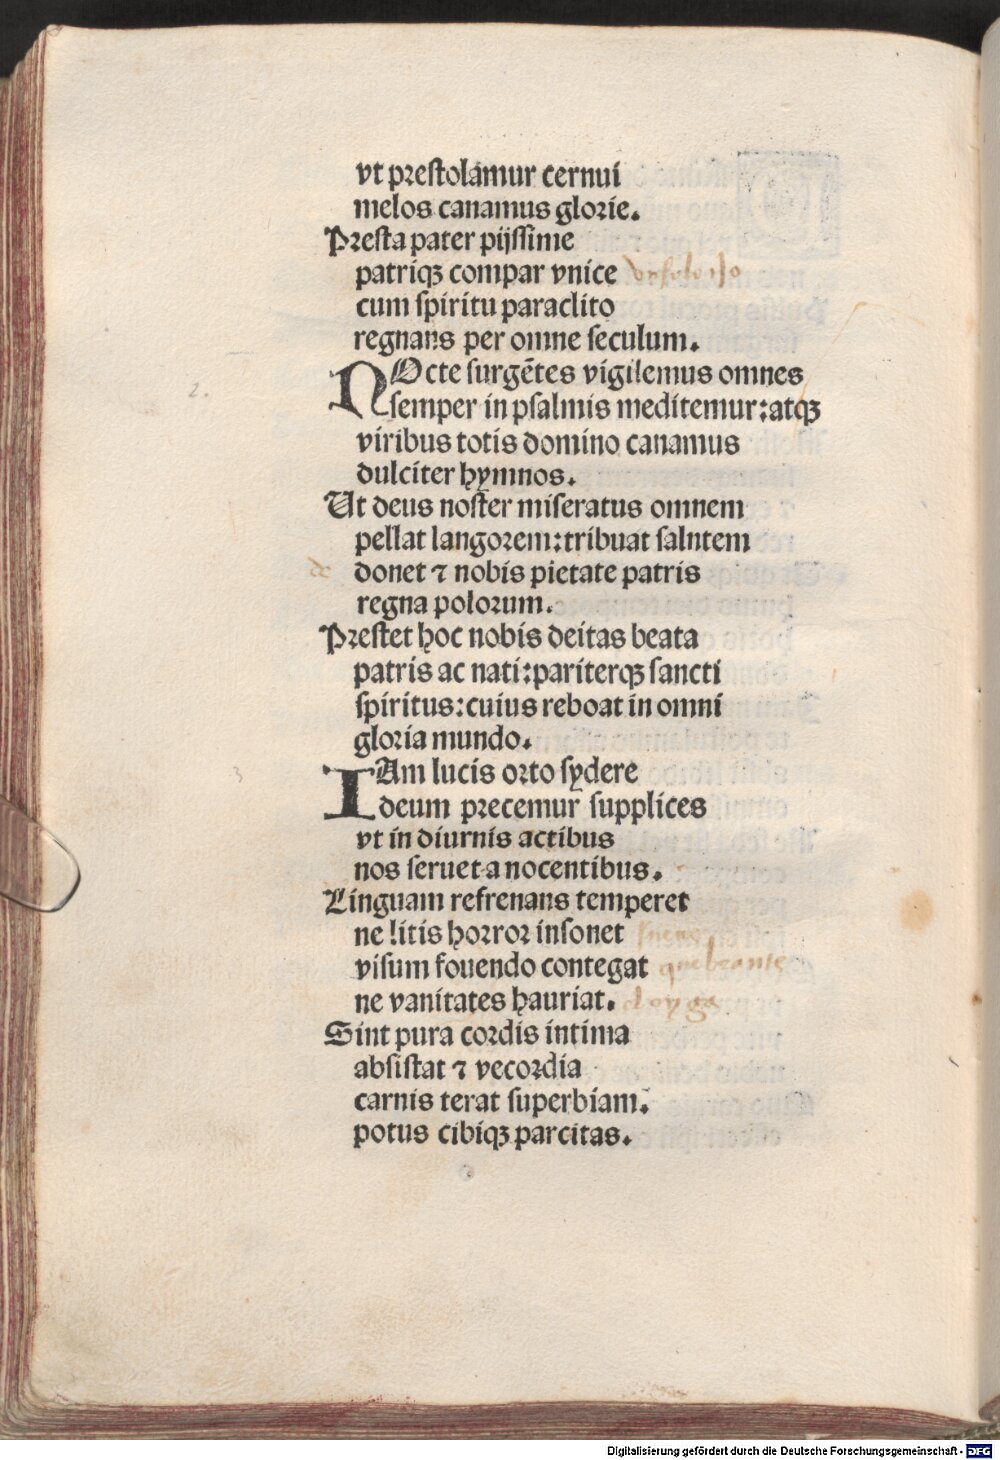 vt prestolamur cernui
melos canamus glorie.
Presta pater pijssime
patriqꝫ compar vnice
cum spiritu paraclito
regnans per omne seculum.
NOcte surgētes vigilemus omnes
semper in psalmis meditemur:atqꝫ
viribus totis domino canamus
dulciter hymnos.
Ut deus noster miseratus omnem
pellat langorem:tribuat salutem
donet ⁊ nobis pietate patris
regna polorum.
Prestet hoc nobis deitas beata
patris ac nati:pariterqꝫ sancti
spiritus:cuius reboat in omni
gloria mundo.
IAm lucis orto sydere
deum precemur supplices
vt in diurnis actibus
nos seruet a nocentibus.
Linguam refrenans temperet
ne litis horror insonet
visum fouendo contegat
ne vanitates hauriat.
Sint pura cordis intima
absistat ⁊ vecordia
carnis terat superbiam.
potus cibiqꝫ parcitas.
2.
3
Digitalisierung gefördert durch die Deutsche Forschungsgemeinschaft - DFG